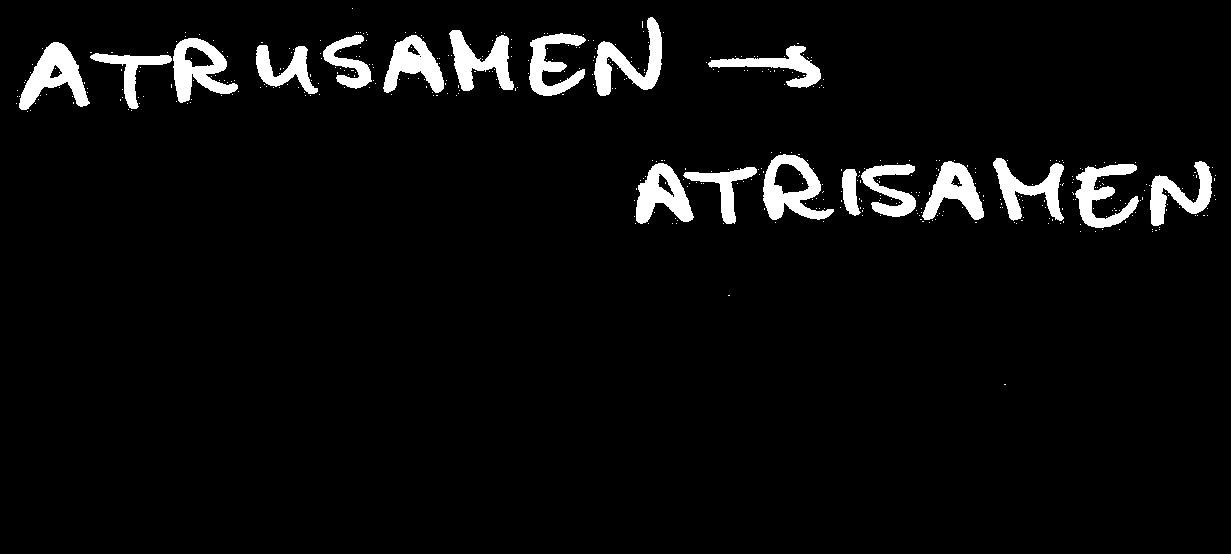 ATRUSAMEN →
ATRISAMEN